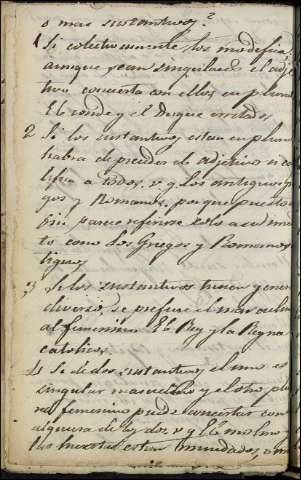 o mas sustantivos?
1 Si colectivamente los modifica,
aunque sean singulares el adje
tivo concierta con ellos en plural
El conde y el Duque
2 Si los sustantivos estan en plural
habra de preceder el adjetivo si ca
lifica a todos, v. g. los antiguos grie
gos y Romanos, porque puesto
sin parece referirse solo a
como los Griegos y Romanos
tiguos
3 Si los sustantivos tienen genero
diverso, se prefiere el masculino
al femenino. El Rey y la Reyna
catolicos
4 Si de dos sustantivos el uno es
singular masculino y el otro plu
ral femenino puede concertar con
cualquiera de los dos v. g. El molino y
las huertas estan inundadas, o